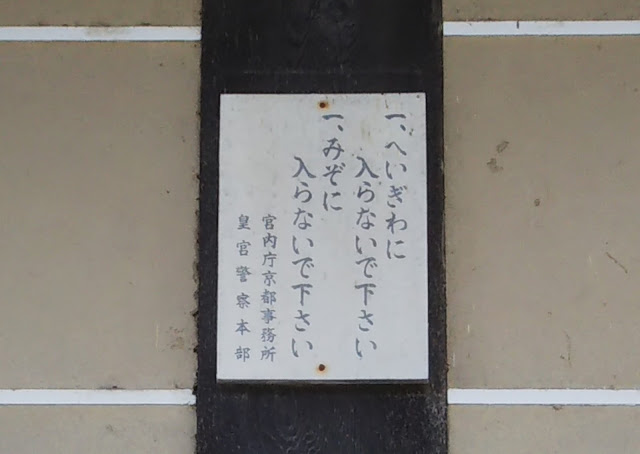 一、へいぎわに
入らないで下さい
一、みぞに
入らないで下さい
宮内庁京都事務所
皇宮警察本部